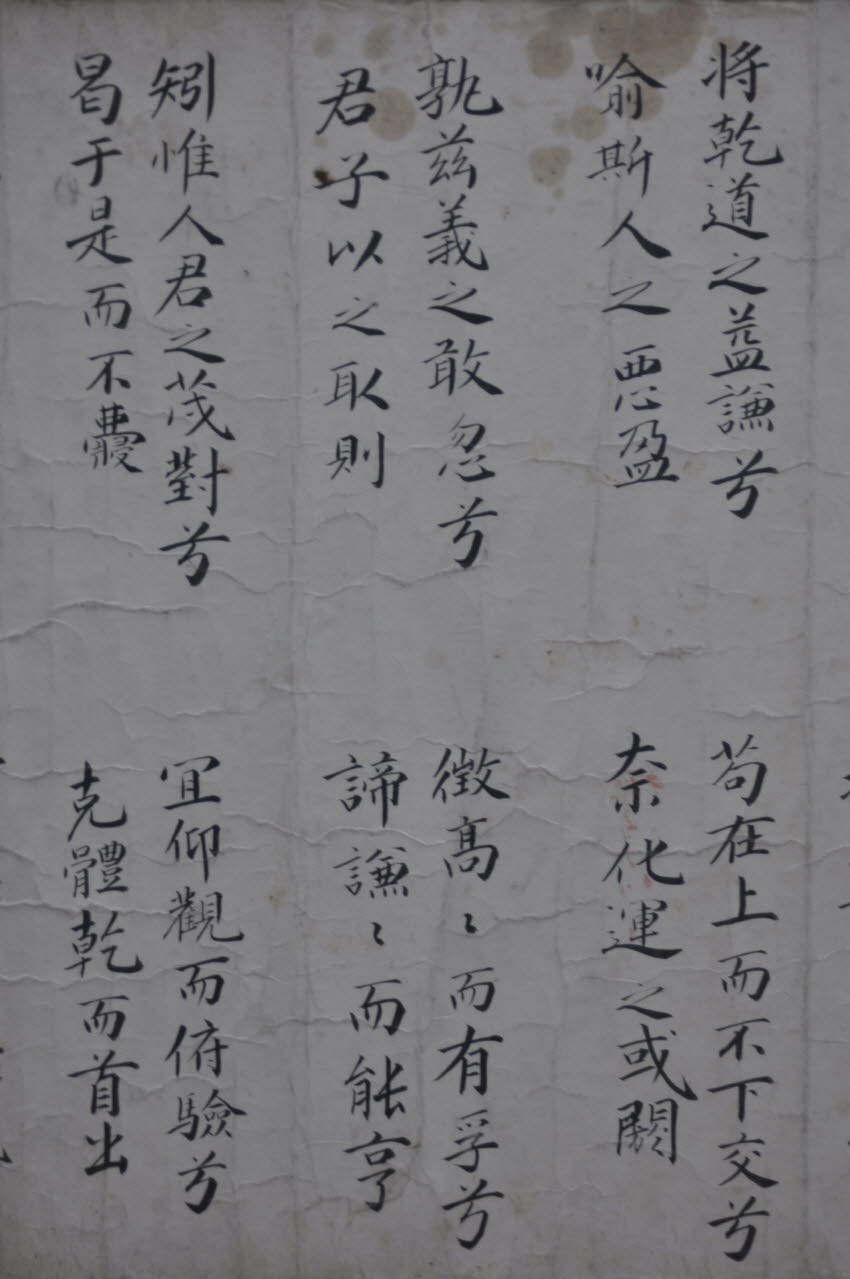 將乾道之益謙兮
喻斯人之悪盈
孰茲義之敢忽兮
君子以之取則
矧惟人君之茂對兮
曷于是而不
苟在上而不下交兮
奈化運之或闕
徵高〻而有孚兮
諦謙〻而能亨
宜仰觀而俯驗兮
克體乾而首出